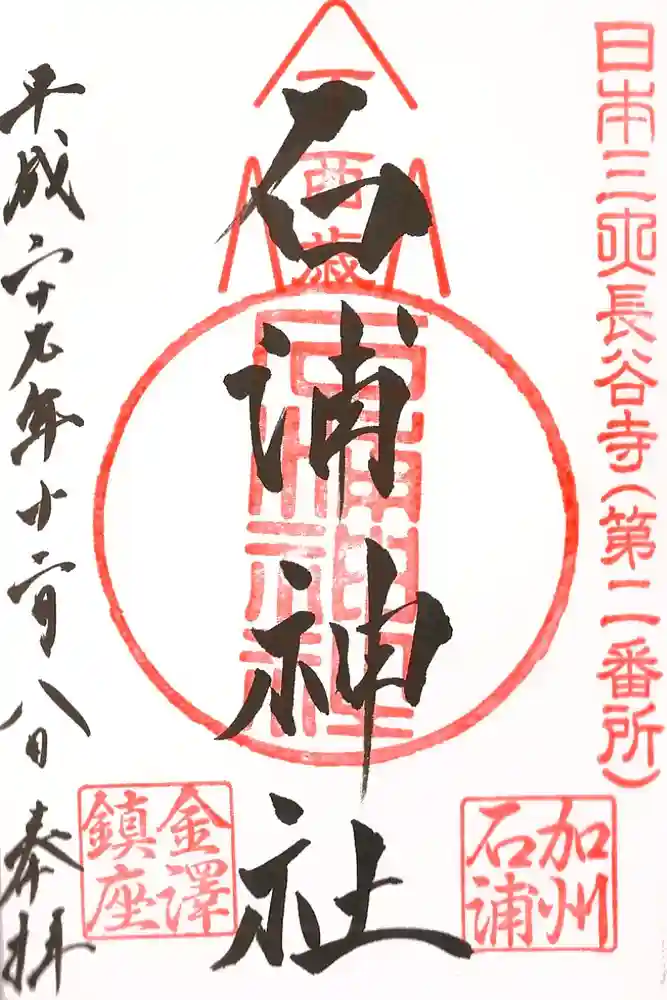 日本三大長谷寺(第二番所)
加州
石浦
丁酉歳
石浦神社
石浦神社
金澤
鎮座
平成二十九年十二月八日奉拝